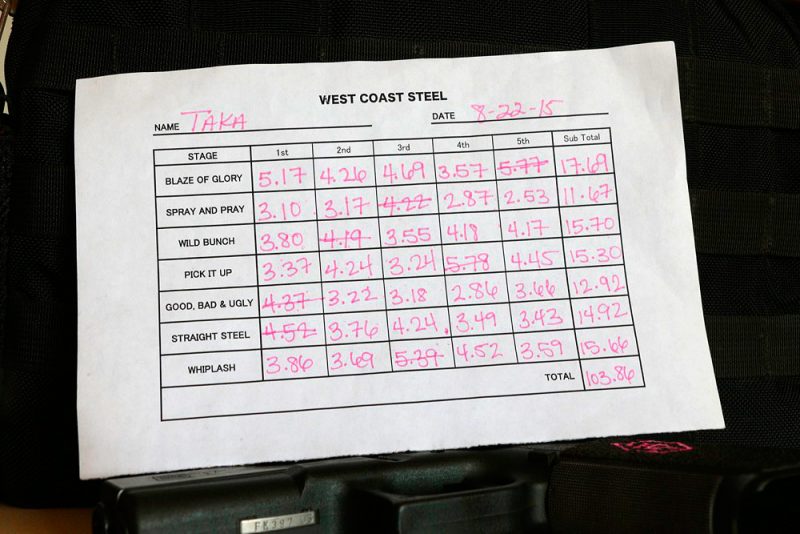 WEST COAST STEEL
NAME TAKA DATE 8-22-15
STAGE 1st 2nd 3rd 4th 5th Sub Total
BLAZE OF GLORY 5.17 4.26 4.69 3.57 5.77 17.69
SPRAY AND PRAY 3.10 3.17 4.22 2.87 2.53 11.67
WILD BUNCH 3.80 4.19 3.55 4.18 4.17 15.70
PICK IT UP 3.37 4.24 3.24 5.78 4.45 15.30
GOOD, BAD & UGLY 4.37 3.22 3.18 2.86 3.66 12.92
STRAIGHT STEEL 4.52 3.76 4.24 3.49 3.43 14.92
WHIPLASH 3.86 3.69 5.39 4.52 3.59 15.66
TOTAL 103.86